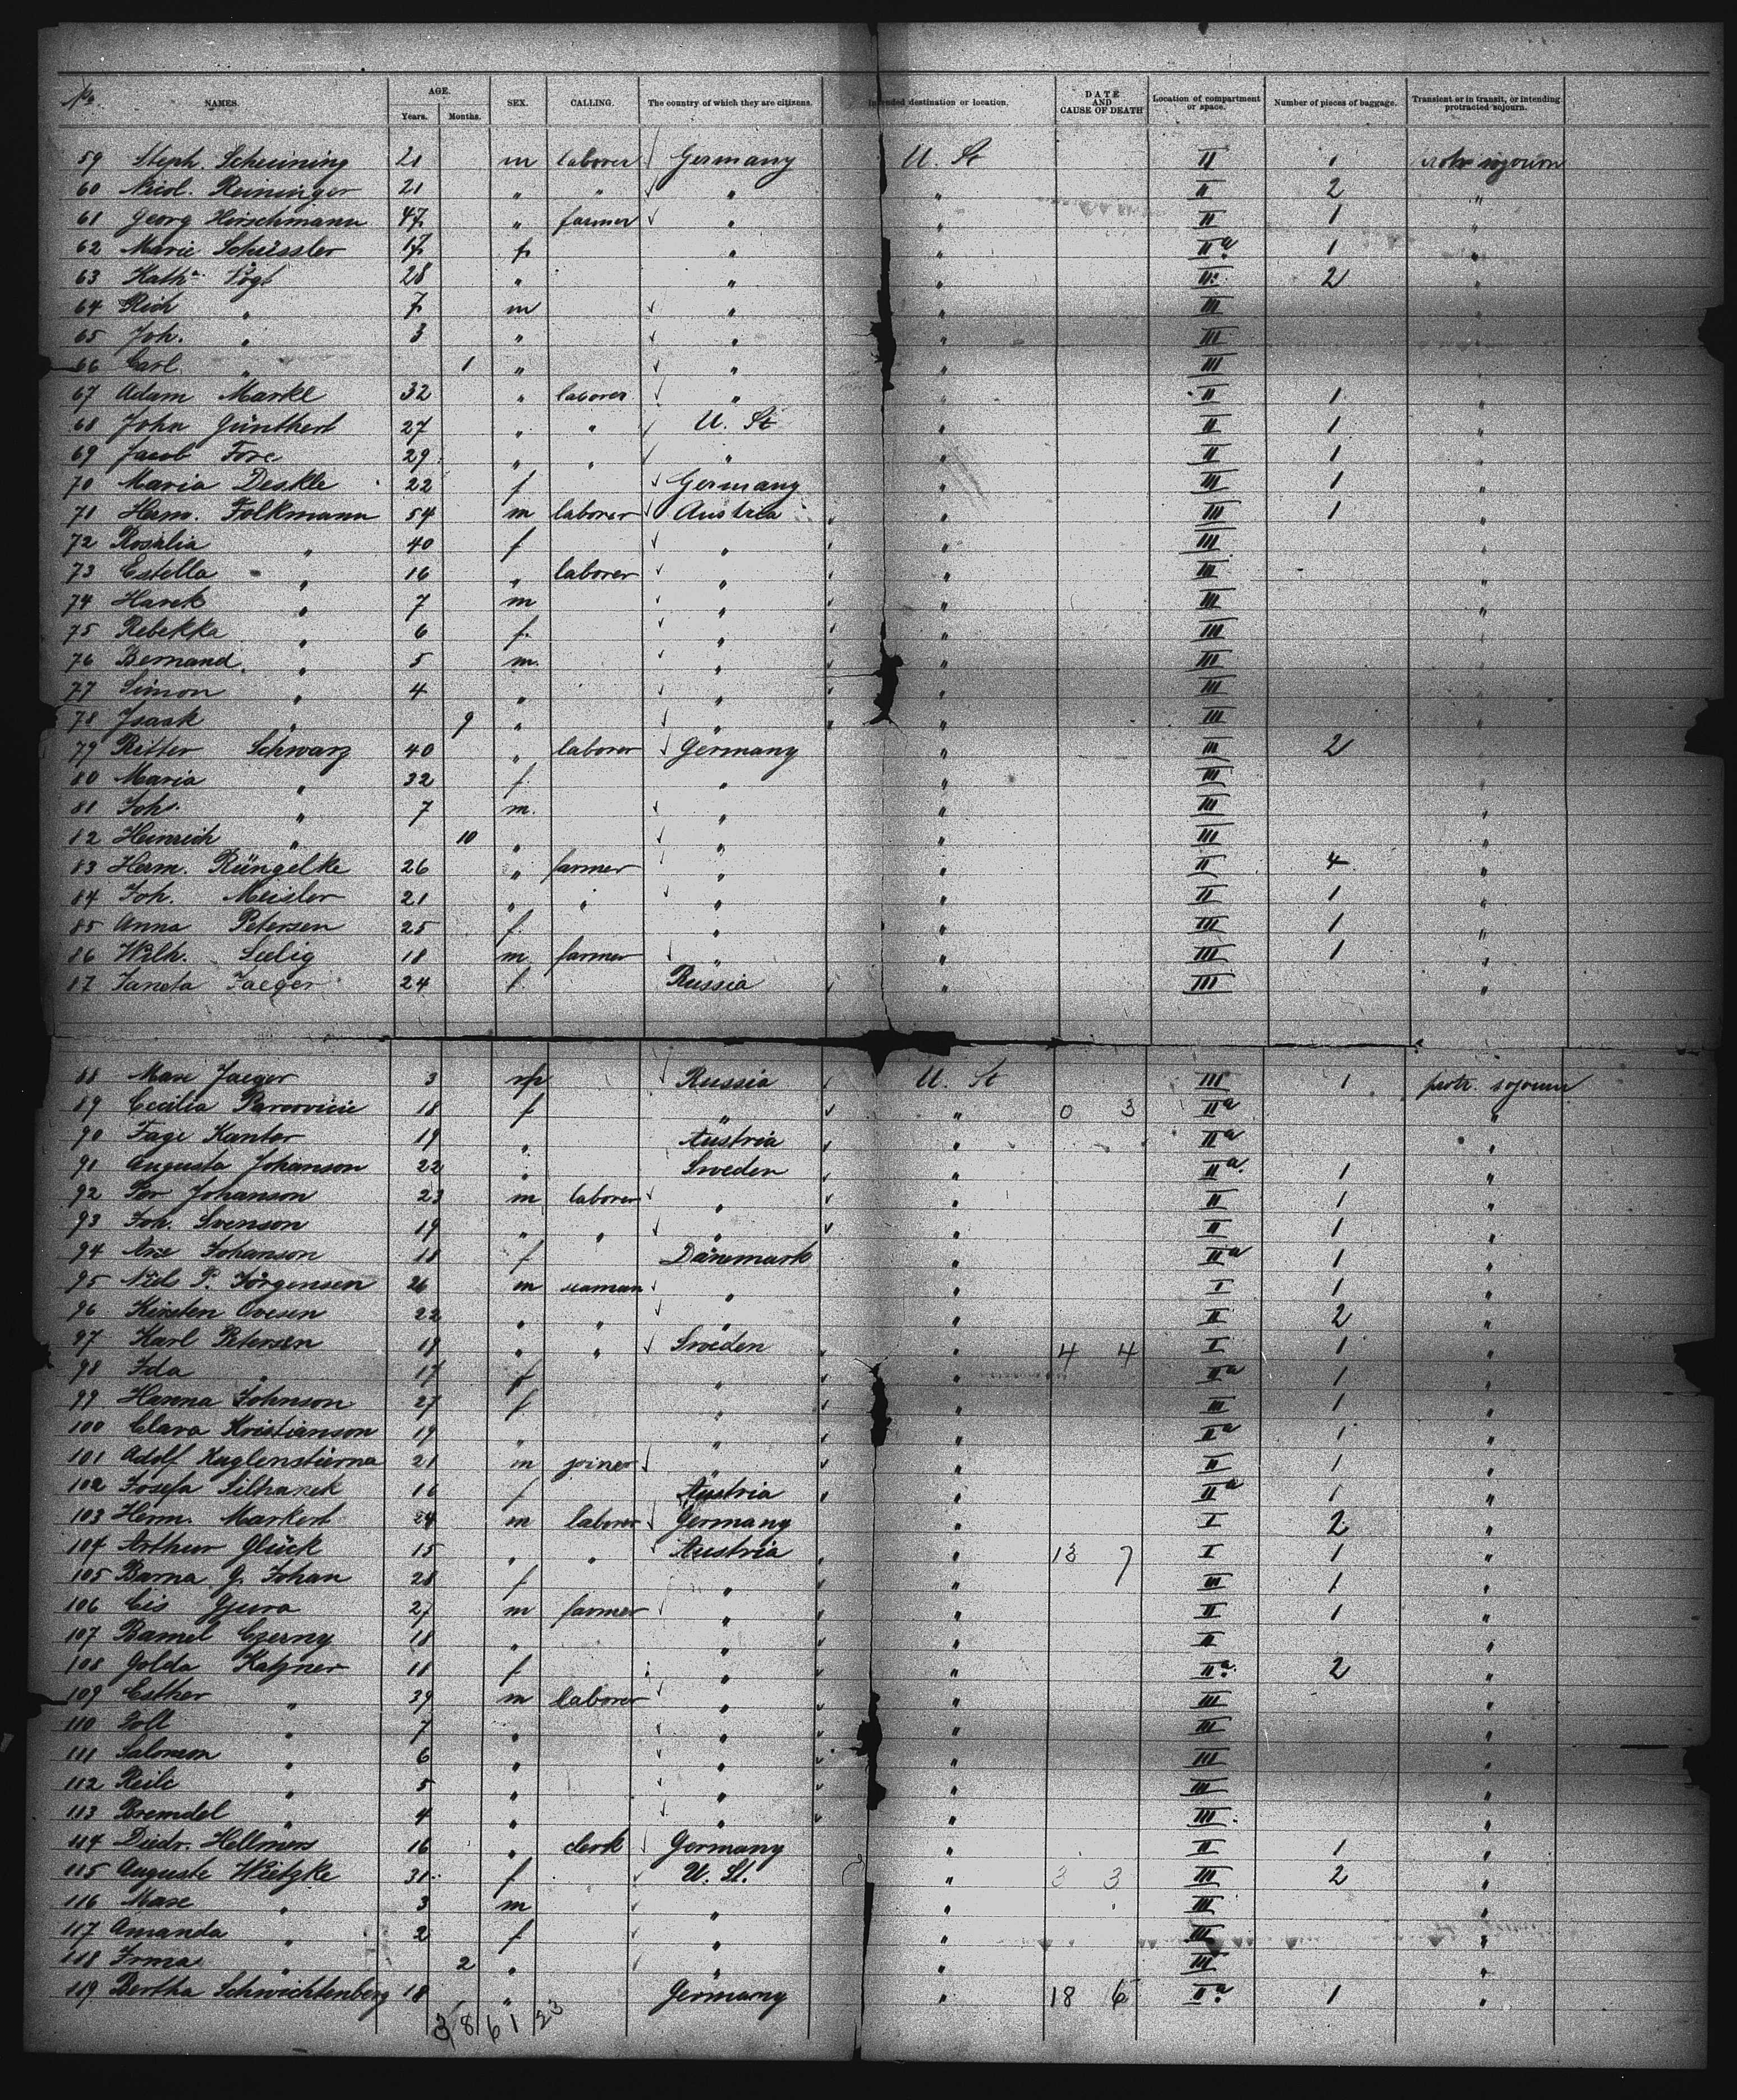 No. NAMES. AGE. Years. Months. SEX. CALLING. The country of which they are citizens. Intended destination or location. DATE AND CAUSE OF DEATH Location of compartment or space. Number of pieces of baggage. Transient or in transit, or intending protracted sojourn.
59 Steph. Scheining 21 m laborer Germany U. St II 1 sojourn
60 Nicol. Reininger 21 " " " " II 2 "
61 Georg Hirschmann 47 " farmer " " II 1 "
62 Marie Schüssler 17 f " " IIa 1 "
63 Kath. Vogt 28 " " " 2 "
64 Rich " 7 m " " III
65 Joh. " 3 " " " III
66 Carl " 1 " " " III
67 Adam Markl 32 " laborer " " II 1 "
68 John Günthert 27 " " U. St " II 1 "
69 Jacob Fore 29 " " " " II 1 "
70 Maria Deskle 22 f Germany " III 1 "
71 Herm. Folkmann 54 m laborer Austria " III 1 "
72 Rosalia " 40 f " " III "
73 Estella " 16 " laborer " " III "
74 Harek " 7 m " " III "
75 Rebekka " 6 f. " " III "
76 Bernand " 5 m. " " III "
77 Simon " 4 " " " III "
78 Isaak " 9 " " " III "
79 Ritter Schwarz 40 " laborer Germany " III 2 "
80 Maria " 32 f " " III "
81 Joh. " 7 m. " " III "
82 Heinrich " 10 " " " III "
83 Herm. Rüngelke 26 " farmer " " II 4 "
84 Joh. Meisler 21 " " " " II 1 "
85 Anna Petersen 25 f " " III 1 "
86 Wilh. Seelig 18 m farmer " " III 1 "
87 Janeta Jaeger 24 f Russia " III "
88 Max Jaeger 3 Russia U. St III 1 protr. sojourn
89 Cecilia 18 f " " 0 3 IIa "
90 Fage Kantor 19 " Austria " IIa "
91 Augusta Johanson 22 " Sweden " IIa. 1 "
92 Per Johanson 23 m laborer " " II 1 "
93 Joh. Svenson 19 " " " " II 1 "
94 Ane Johanson 18 f Dänemark " IIa 1 "
95 Niels P. Jörgensen 26 m seaman " " I 1 "
96 Kirsten Ovesen 22 " " " " II 2 "
97 Karl Petersen 18 " " Sweden " 4 4 I 1 "
98 Ida " 17 f " " IIa 1 "
99 Hanna Johnson 27 f " " III 1 "
100 Clara Kristianson 19 " " " IIa 1 "
101 Adolf 21 m joiner " " II 1 "
102 Josefa Silhanek 16 f Austria " IIa 1 "
103 Herm. Markert 24 m laborer Germany " I 2 "
104 Arthur Glück 15 " " Austria " 13 7 I 1 "
105 Barna G. Johan 28 f " " III 1 "
106 Cis Gjura 27 m farmer " " II 1 "
107 Czerny 18 " " " II "
108 Golda Katzner 18 f " " IIa. 2 "
109 Esther " 39 m laborer " " III "
110 " 7 " " " III "
111 Salomon " 6 " " " III "
112 " 5 " " " III "
113 Bremdel " 4 " " " III. "
114 Diedr. Hellmers 16 " clerk Germany " II 1 "
115 Auguste Wietzke 31 f U. St. " 3 3 III 2 "
116 Max " 3 m " " III "
117 Amanda " 2 f " " III "
118 Irma " 2 " " " III "
119 Bertha Schwichtenberg 18 " Germany " 18 6 IIa. 1 "
3/8/61/23